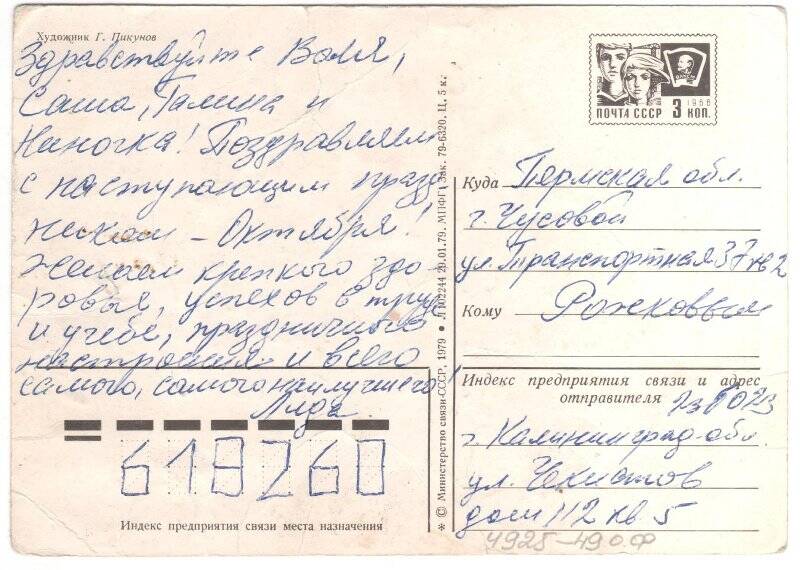 Художник Г. Пикунов
Здравствуйте Валя,
Саша, Галина и
Ниночка! Поздравляем
с наступающим празд
ником – Октября!
Желаем крепкого здо-
ровья, успехов в труде
и учебе, праздничного
настроения и всего
самого, самого наилучшего!
Лида.
618260
Индекс предприятия связи места назначения
* © Министерство связи СССР, 1979 • Л 102244 29.01.79. МПФГ. Зак. 79-6320. Ц. 5 к.
1966
ПОЧТА СССР 3 КОП.
Куда Пермская обл.
г. Чусовой
ул. Транспортная 37 кв 2
Кому Рожковым
Индекс предприятия связи и адрес
отправителя
г. Калининград-обл.
ул. Чекистов
дом 112 кв 5
4925-49 о.ф